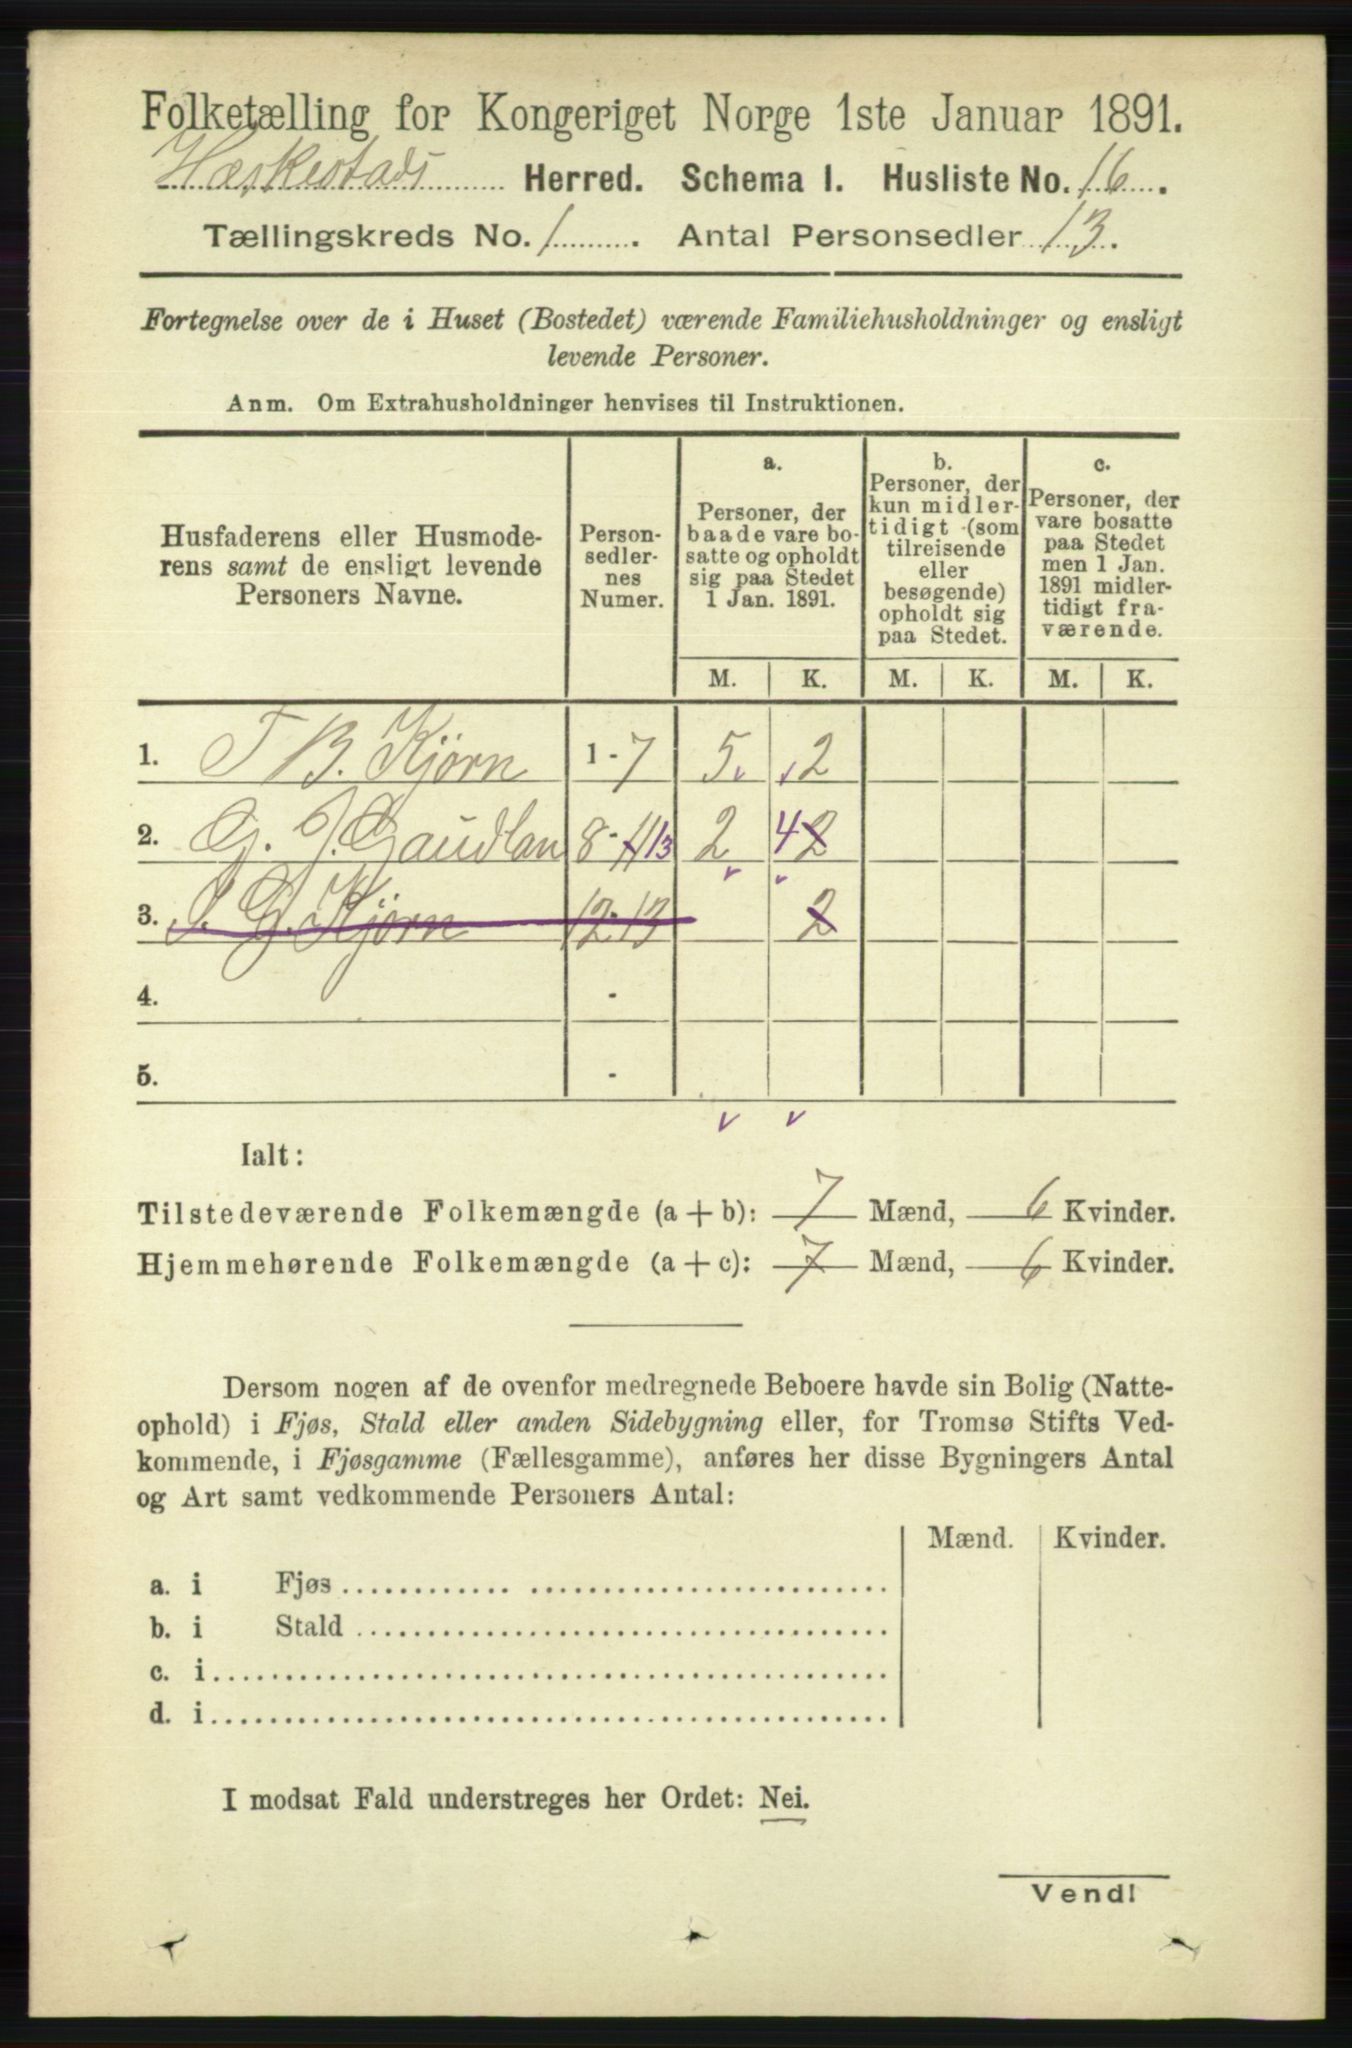 Folketælling for Kongeriget Norge 1ste Januar 1891.
Heskestads Herred. Schema 1. Husliste No. 16.
Tællingskreds No. 1. Antal Personsedler 13.
Fortegnelse over de i Huset (Bostedet) værende Familiehusholdninger og ensligt
levende Personer.
Anm. Om Extrahusholdninger henvises til Instruktionen.
Husfaderens eller Husmode-
rens samt de ensligt levende
Personers Navne.
Person-
sedler-
nes
Numer.
a.
Personer, der
baade vare bo-
satte og opholdt
sig paa Stedet
1 Jan. 1891.
b.
Personer, der
kun midler-
tidigt (som
tilreisende
eller
besøgende)
opholdt sig
paa Stedet.
c.
Personer, der
vare bosatte
paa Stedet
men 1 Jan.
1891 midler-
tidigt fra-
værende.
M. K. M. K. M. K.
1. T B. Kjörn 1-7 5 2
2. G. J. Gaudlan 8-11 13 2 4 2
3. G. Kjörn 12-13 2
4. -
5. -
Ialt:
Tilstedeværende Folkemængde (a + b): 7 Mænd, 6 Kvinder.
Hjemmehørende Folkemængde (a + c): 7 Mænd, 6 Kvinder.
Dersom nogen af de ovenfor medregnede Beboere havde sin Bolig (Natte-
ophold) i Fjøs, Stald eller anden Sidebygning eller, for Tromsø Stifts Ved-
kommende, i Fjøsgamme (Fællesgamme), anføres her disse Bygningers Antal
og Art samt vedkommende Personers Antal:
Mænd. Kvinder.
a. i Fjøs
b. i Stald
c. i
d. i
I modsat Fald understreges her Ordet: Nei.
Vend!